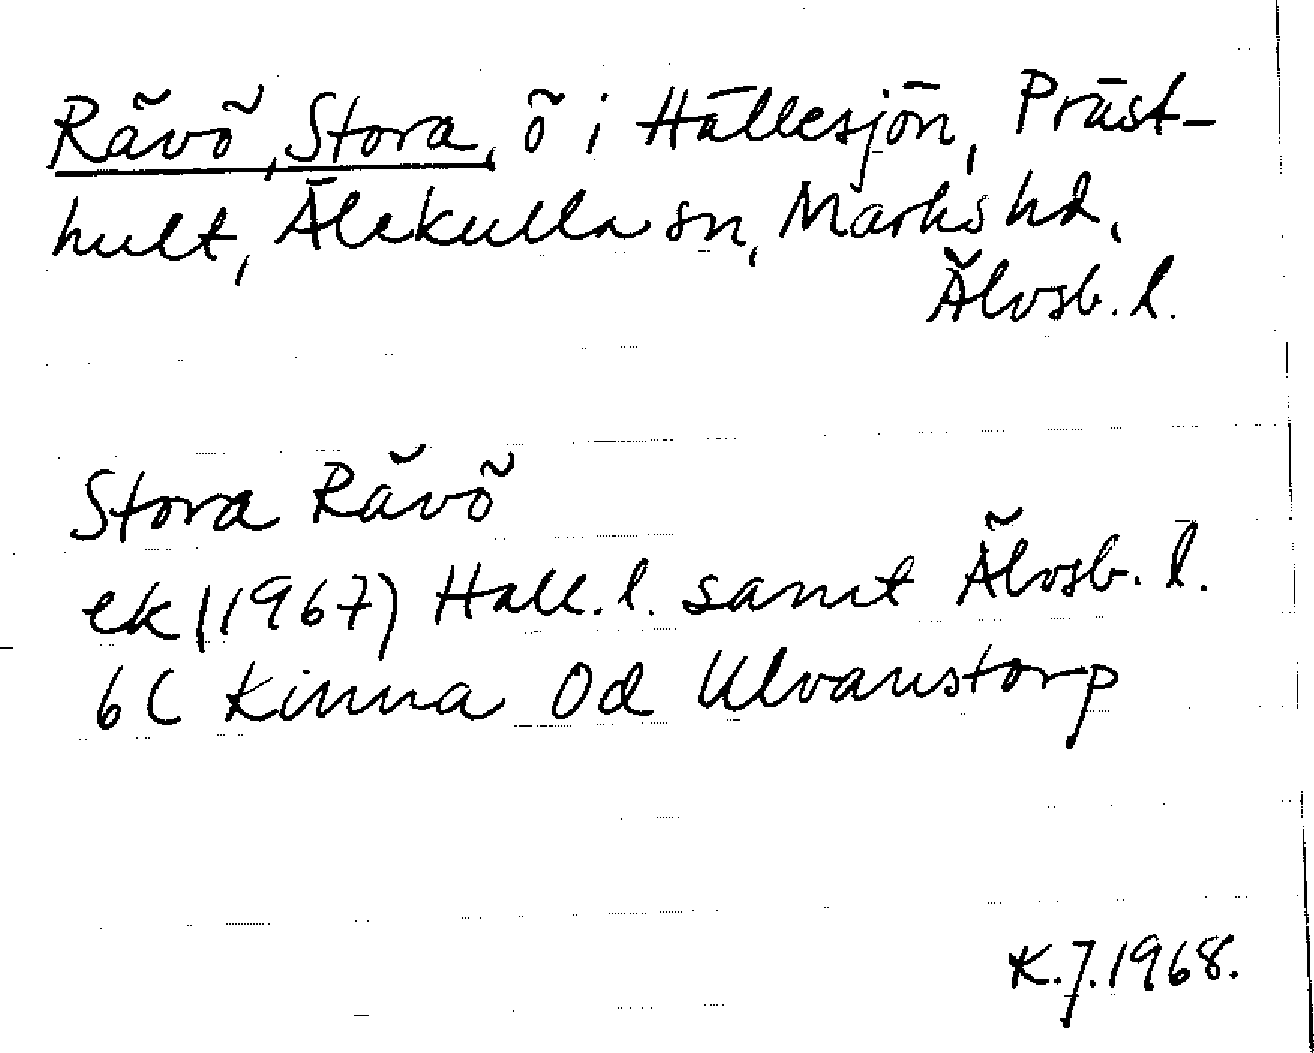 Rävö, Stora, ö i Hällesjön, Präst-
hult, Älekulla sn, Marks hd,
Älvsb. l.
Stora Rävö
ek (1967) Hall. l. samt Älvsb. l.
6C Kinna 0d Ulvanstorp
K.J. 1968.